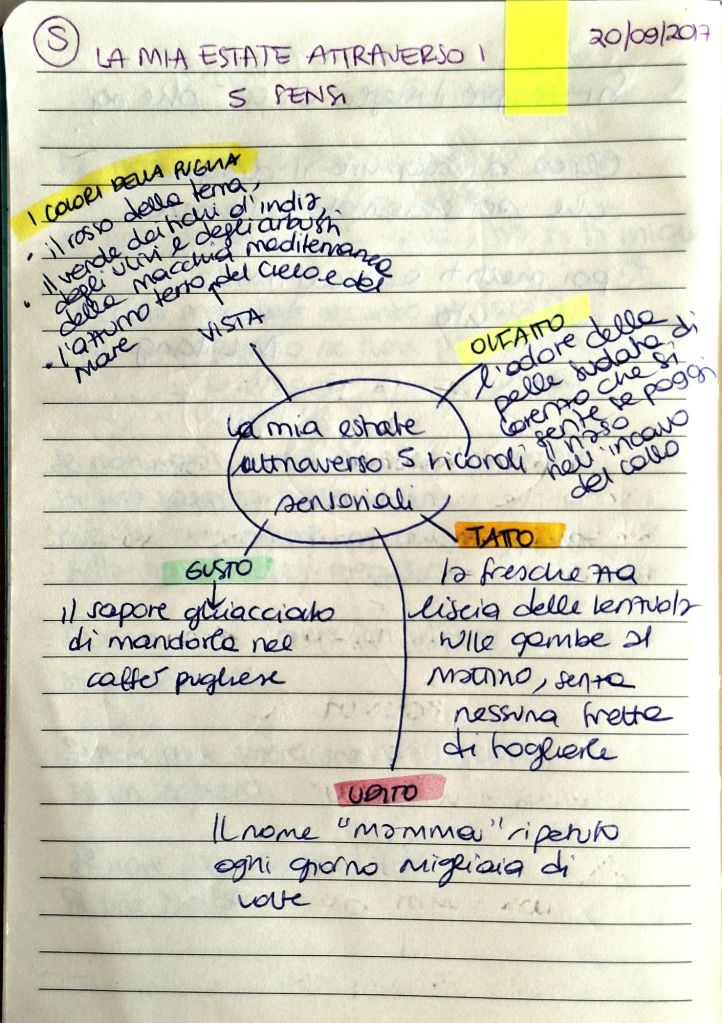 S
20/09/2017
LA MIA ESTATE ATTRAVERSO I
5 SENSI
I COLORI DELLA PUGLIA
• il rosso della terra,
• il verde dei fichi d'india,
degli ulivi e degli arbusti
della macchia mediterranea
• l'azzurro terso del cielo e del
mare
VISTA
OLFATTO
l'odore della
pelle sudata di
Lorenzo che si
sente se poggi
il naso
nell'incavo
del collo
La mia estate
attraverso 5 ricordi
sensoriali
TATTO
la freschezza
liscia delle lenzuola
sulle gambe al
mattino, senza
nessuna fretta
di toglierle
GUSTO
il sapore ghiacciato
di mandorla nel
caffè pugliese
UDITO
Il nome "mamma" ripetuto
ogni giorno migliaia di
volte